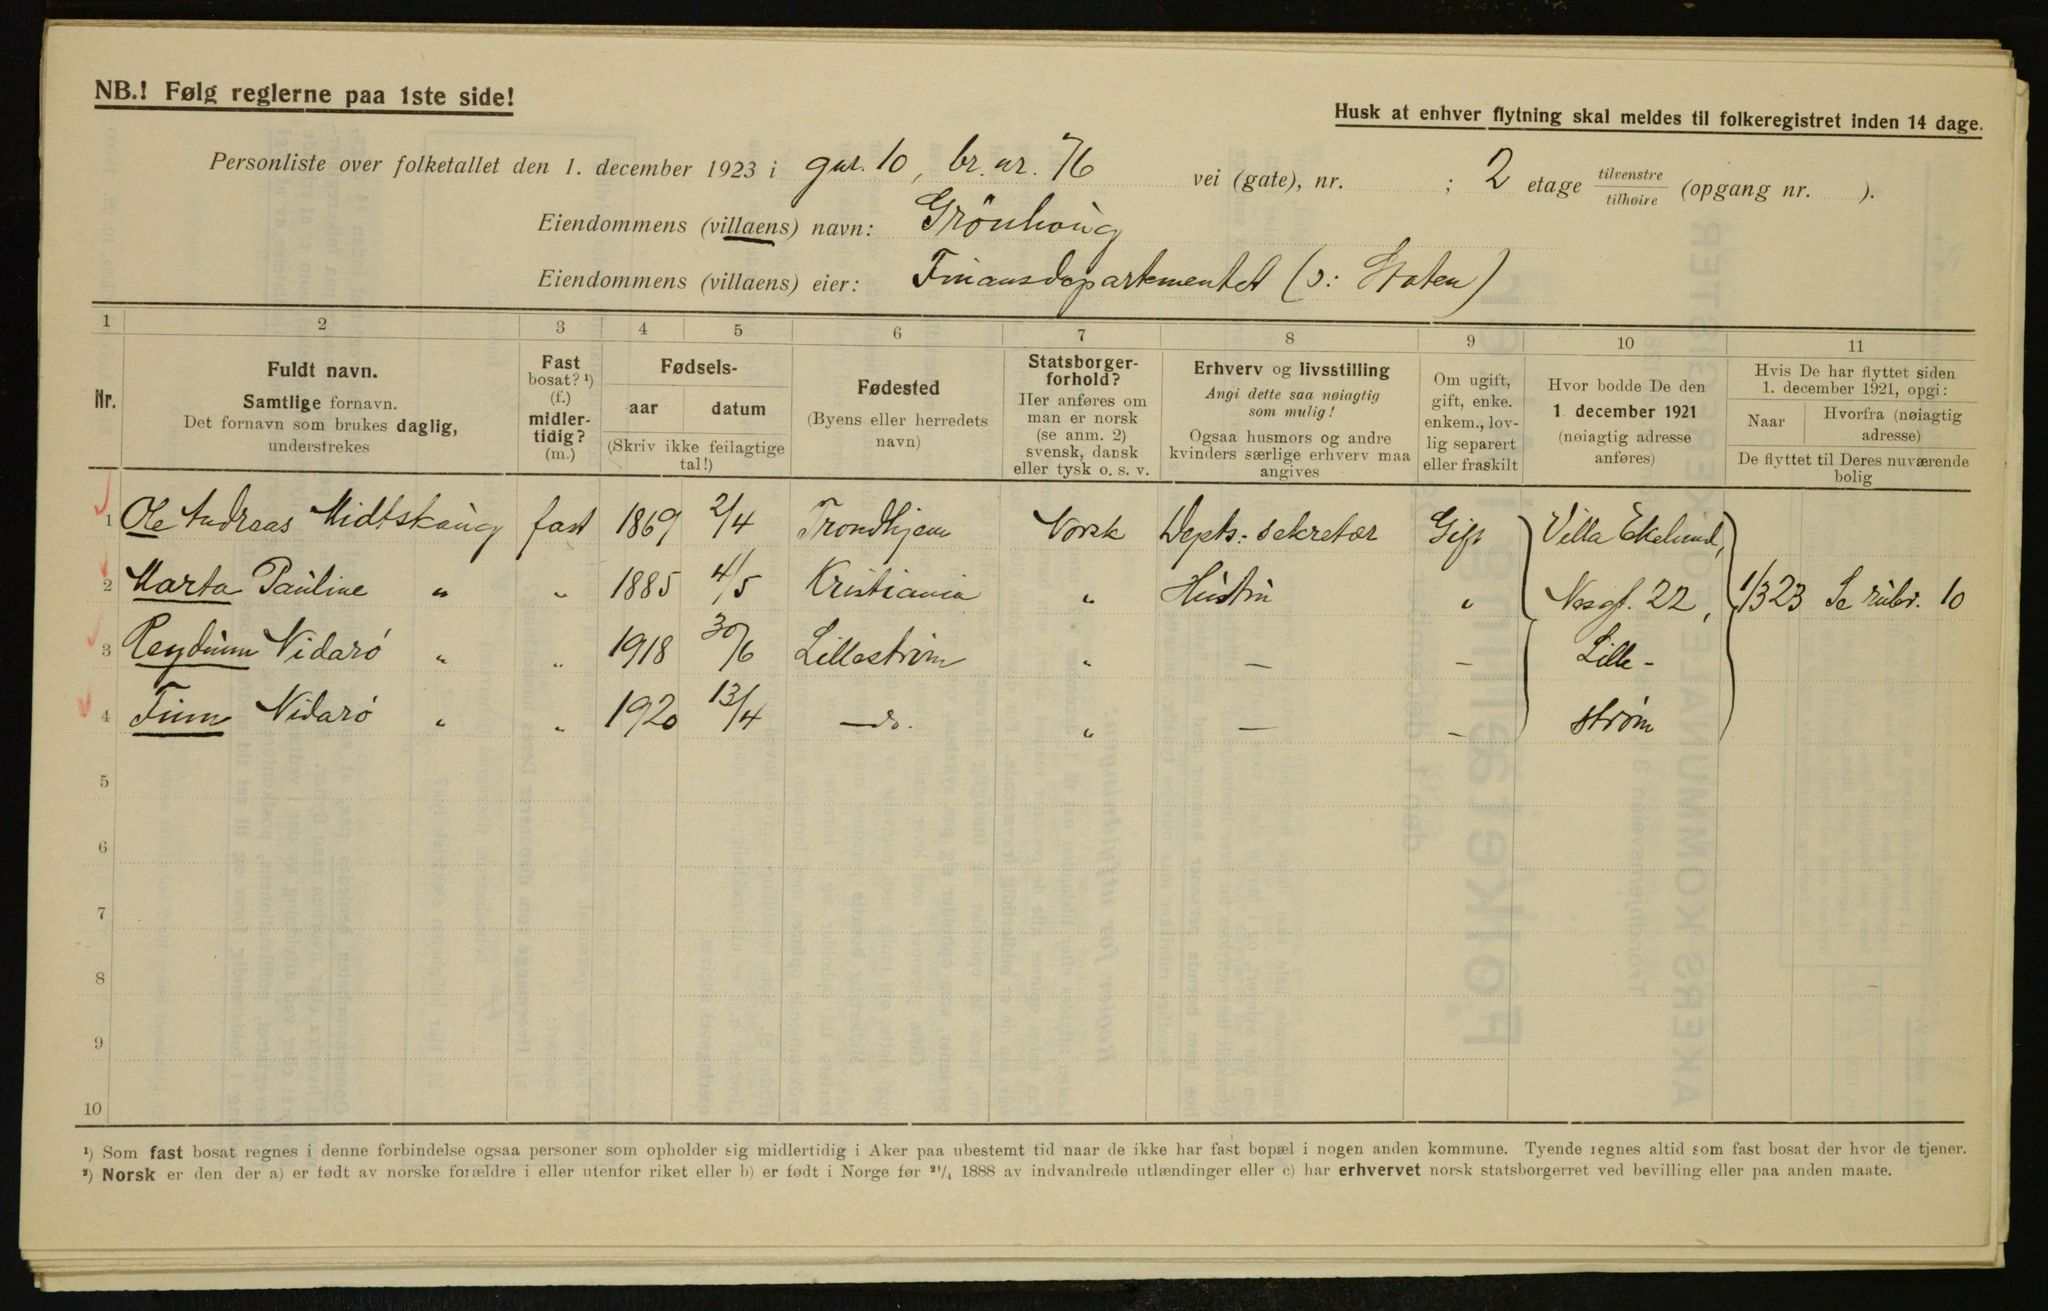 NB.! Følg reglerne paa 1ste side!
Husk at enhver flytning skal meldes til folkeregistret inden 14 dage.
Personliste over folketallet den 1. december 1923 i gnr. 10, br. nr. 76 vei (gate), nr. ; 2 etage tilvenstre/tilhøire (opgang nr. ).
Eiendommens (villaens) navn: Grönhaug
Eiendommens (villaens) eier: Finansdepartementet (ɔ: Staten)
1 2 3 4 5 6 7 8 9 10 11
Nr.
Fuldt navn.
Samtlige fornavn.
Det fornavn som brukes daglig,
understrekes
Fast
bosat? ¹)
(f.)
midler-
tidig?
(m.)
Fødsels-
aar datum
(Skriv ikke feilagtige
tal!)
Fødested
(Byens eller herredets
navn)
Statsborger-
forhold?
Her anføres om
man er norsk
(se anm. 2)
svensk, dansk
eller tysk o. s. v.
Erhverv og livsstilling
Angi dette saa nøiagtig
som mulig!
Ogsaa husmors og andre
kvinders særlige erhverv maa
angives
Om ugift,
gift, enke.
enkem., lov-
lig separert
eller fraskilt
Hvor bodde De den
1 december 1921
(nøiagtig adresse
anføres)
Hvis De har flyttet siden
1. december 1921, opgi:
Naar Hvorfra (nøiagtig
adresse)
De flyttet til Deres nuværende
bolig
1 Ole Andreas Midtskaug fast 1869 2/4 Trondhjem Norsk Depts.-sekretær Gift Villa Ekelund,
2 Marta Pauline " " 1885 4/5 Kristiania " Hustru " Nesgt. 22, 1/3 23 Se rubr. 10
3 Reydunn Nidarö " " 1918 30/6 Lillestrøm " — — Lille-
4 Finn Nidarö " " 1920 13/4 —do. " — — strøm
5
6
7
8
9
10
¹) Som fast bosat regnes i denne forbindelse ogsaa personer som opholder sig midlertidig i Aker paa ubestemt tid naar de ikke har fast bopæl i nogen anden kommune. Tyende regnes altid som fast bosat der hvor de tjener.
²) Norsk er den der a) er født av norske forældre i eller utenfor riket eller b) er født i Norge før ²¹/₄ 1888 av indvandrede utlændinger eller c) har erhvervet norsk statsborgerret ved bevilling eller paa anden maate.